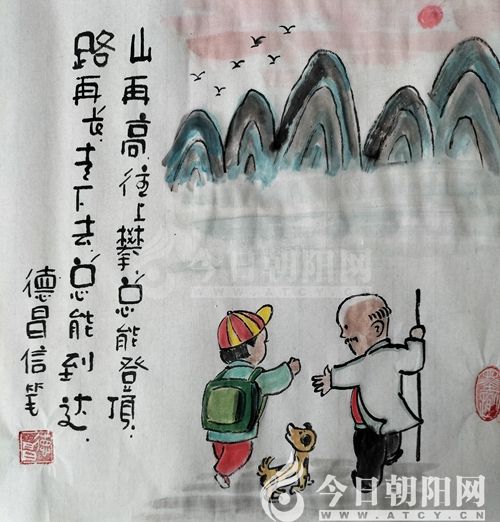 山再高,往上攀,总能登顶,
路再长,走下去,总能到达.
德昌信笔
今日朝阳网
WWW.ATCY.CN
今日朝阳网
WWW.ATCY.CN